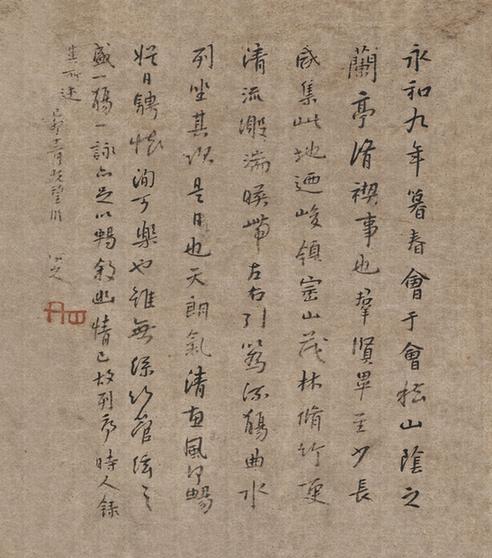 永和九年暮春會于會稽山陰之
蘭亭脩禊事也羣賢畢至少長
咸集此地迺峻領崇山茂林脩竹更
清流激湍暎帶左右引以為流觴曲水
列坐其次是日也天朗氣清惠風和暢
娛目騁懷洵可樂也雖無絲竹管弦之
盛一觴一詠亦足以暢敘幽情已故列序時人錄
其所述 己卯 既望